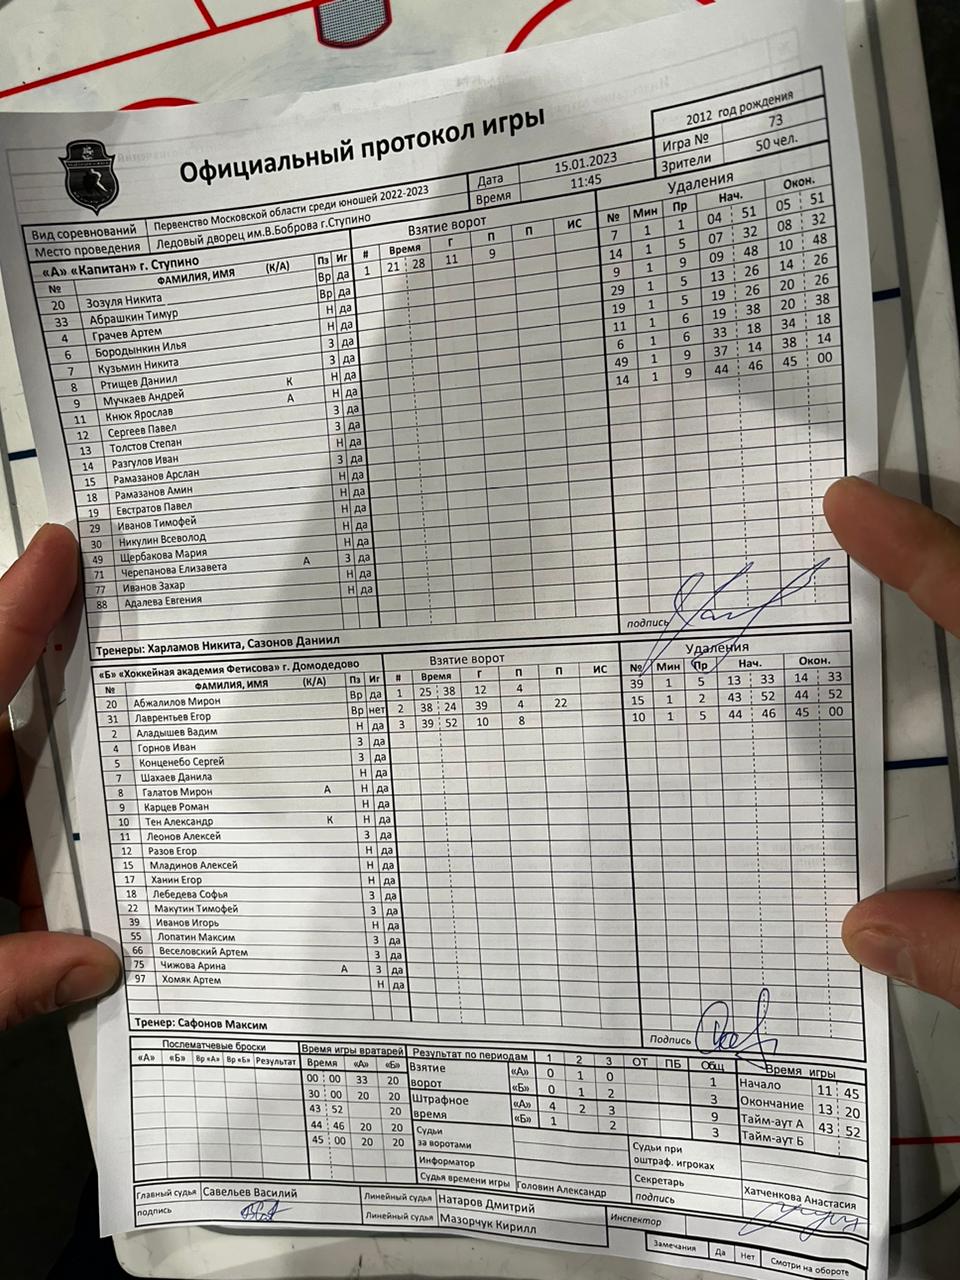 Официальный протокол игры
2012 год рождения
Игра № 73
Зрители 50 чел.
Дата 15.01.2023
Время 11:45
Вид соревнований Первенство Московской области среди юношей 2022-2023
Место проведения Ледовый дворец им.В.Боброва г.Ступино
«А» «Капитан» г. Ступино Взятие ворот Удаления
№ ФАМИЛИЯ, ИМЯ (К/А) Пз Иг # Время Г П П ИС № Мин Пр Нач. Окон.
20 Зозуля Никита Вр да 1 21 28 11 9 7 1 1 04 51 05 51
33 Абрашкин Тимур Вр да 14 1 5 07 32 08 32
4 Грачев Артем Н да 9 1 9 09 48 10 48
6 Бородынкин Илья Н да 29 1 5 13 26 14 26
7 Кузьмин Никита З да 19 1 5 19 26 20 26
8 Ртищев Даниил З да 11 1 6 19 38 20 38
9 Мучкаев Андрей К Н да 6 1 6 33 18 34 18
11 Кнюк Ярослав А Н да 49 1 9 37 14 38 14
12 Сергеев Павел З да 14 1 9 44 46 45 00
13 Толстов Степан З да
14 Разгулов Иван Н да
15 Рамазанов Арслан З да
18 Рамазанов Амин Н да
19 Евстратов Павел Н да
29 Иванов Тимофей Н да
30 Никулин Всеволод Н да
49 Щербакова Мария Н да
71 Черепанова Елизавета А З да
77 Иванов Захар Н да
88 Адалева Евгения Н да
подпись
Тренеры: Харламов Никита, Сазонов Даниил
«Б» «Хоккейная академия Фетисова» г. Домодедово Взятие ворот Удаления
№ ФАМИЛИЯ, ИМЯ (К/А) Пз Иг # Время Г П П ИС № Мин Пр Нач. Окон.
20 Абжалилов Мирон Вр да 1 25 38 12 4 39 1 5 13 33 14 33
31 Лаврентьев Егор Вр нет 2 38 24 39 4 22 15 1 2 43 52 44 52
2 Аладышев Вадим Н да 3 39 52 10 8 10 1 5 44 46 45 00
4 Горнов Иван З да
5 Конценебо Сергей З да
7 Шахаев Данила Н да
8 Галатов Мирон А Н да
9 Карцев Роман Н да
10 Тен Александр К Н да
11 Леонов Алексей З да
12 Разов Егор Н да
15 Младинов Алексей Н да
17 Ханин Егор Н да
18 Лебедева Софья З да
22 Макутин Тимофей З да
39 Иванов Игорь Н да
55 Лопатин Максим З да
66 Веселовский Артем З да
75 Чижова Арина А З да
97 Хомяк Артем Н да
Тренер: Сафонов Максим
Подпись
Послематчевые броски Время игры вратарей Результат по периодам 1 2 3 ОТ ПБ Общ Время игры
«А» «Б» Вр «А» Вр «Б» Результат Время «А» «Б»
Взятие ворот «А» 0 1 0 1
«Б» 0 1 2 3
Штрафное время «А» 4 2 3 9
«Б» 1 2 3
00 00 33 20
30 00 20 20
43 52 20
44 46 20 20
45 00 20 20
Начало 11 45
Окончание 13 20
Тайм-аут А 43 52
Тайм-аут Б
Судьи за воротами
Судьи при оштраф. игроках
Информатор
Секретарь Хатченкова Анастасия
Судья времени игры Головин Александр
подпись
Главный судья Савельев Василий
Линейный судья Натаров Дмитрий
подпись
Линейный судья Мазорчук Кирилл
Инспектор
Замечания Да Нет Смотри на обороте